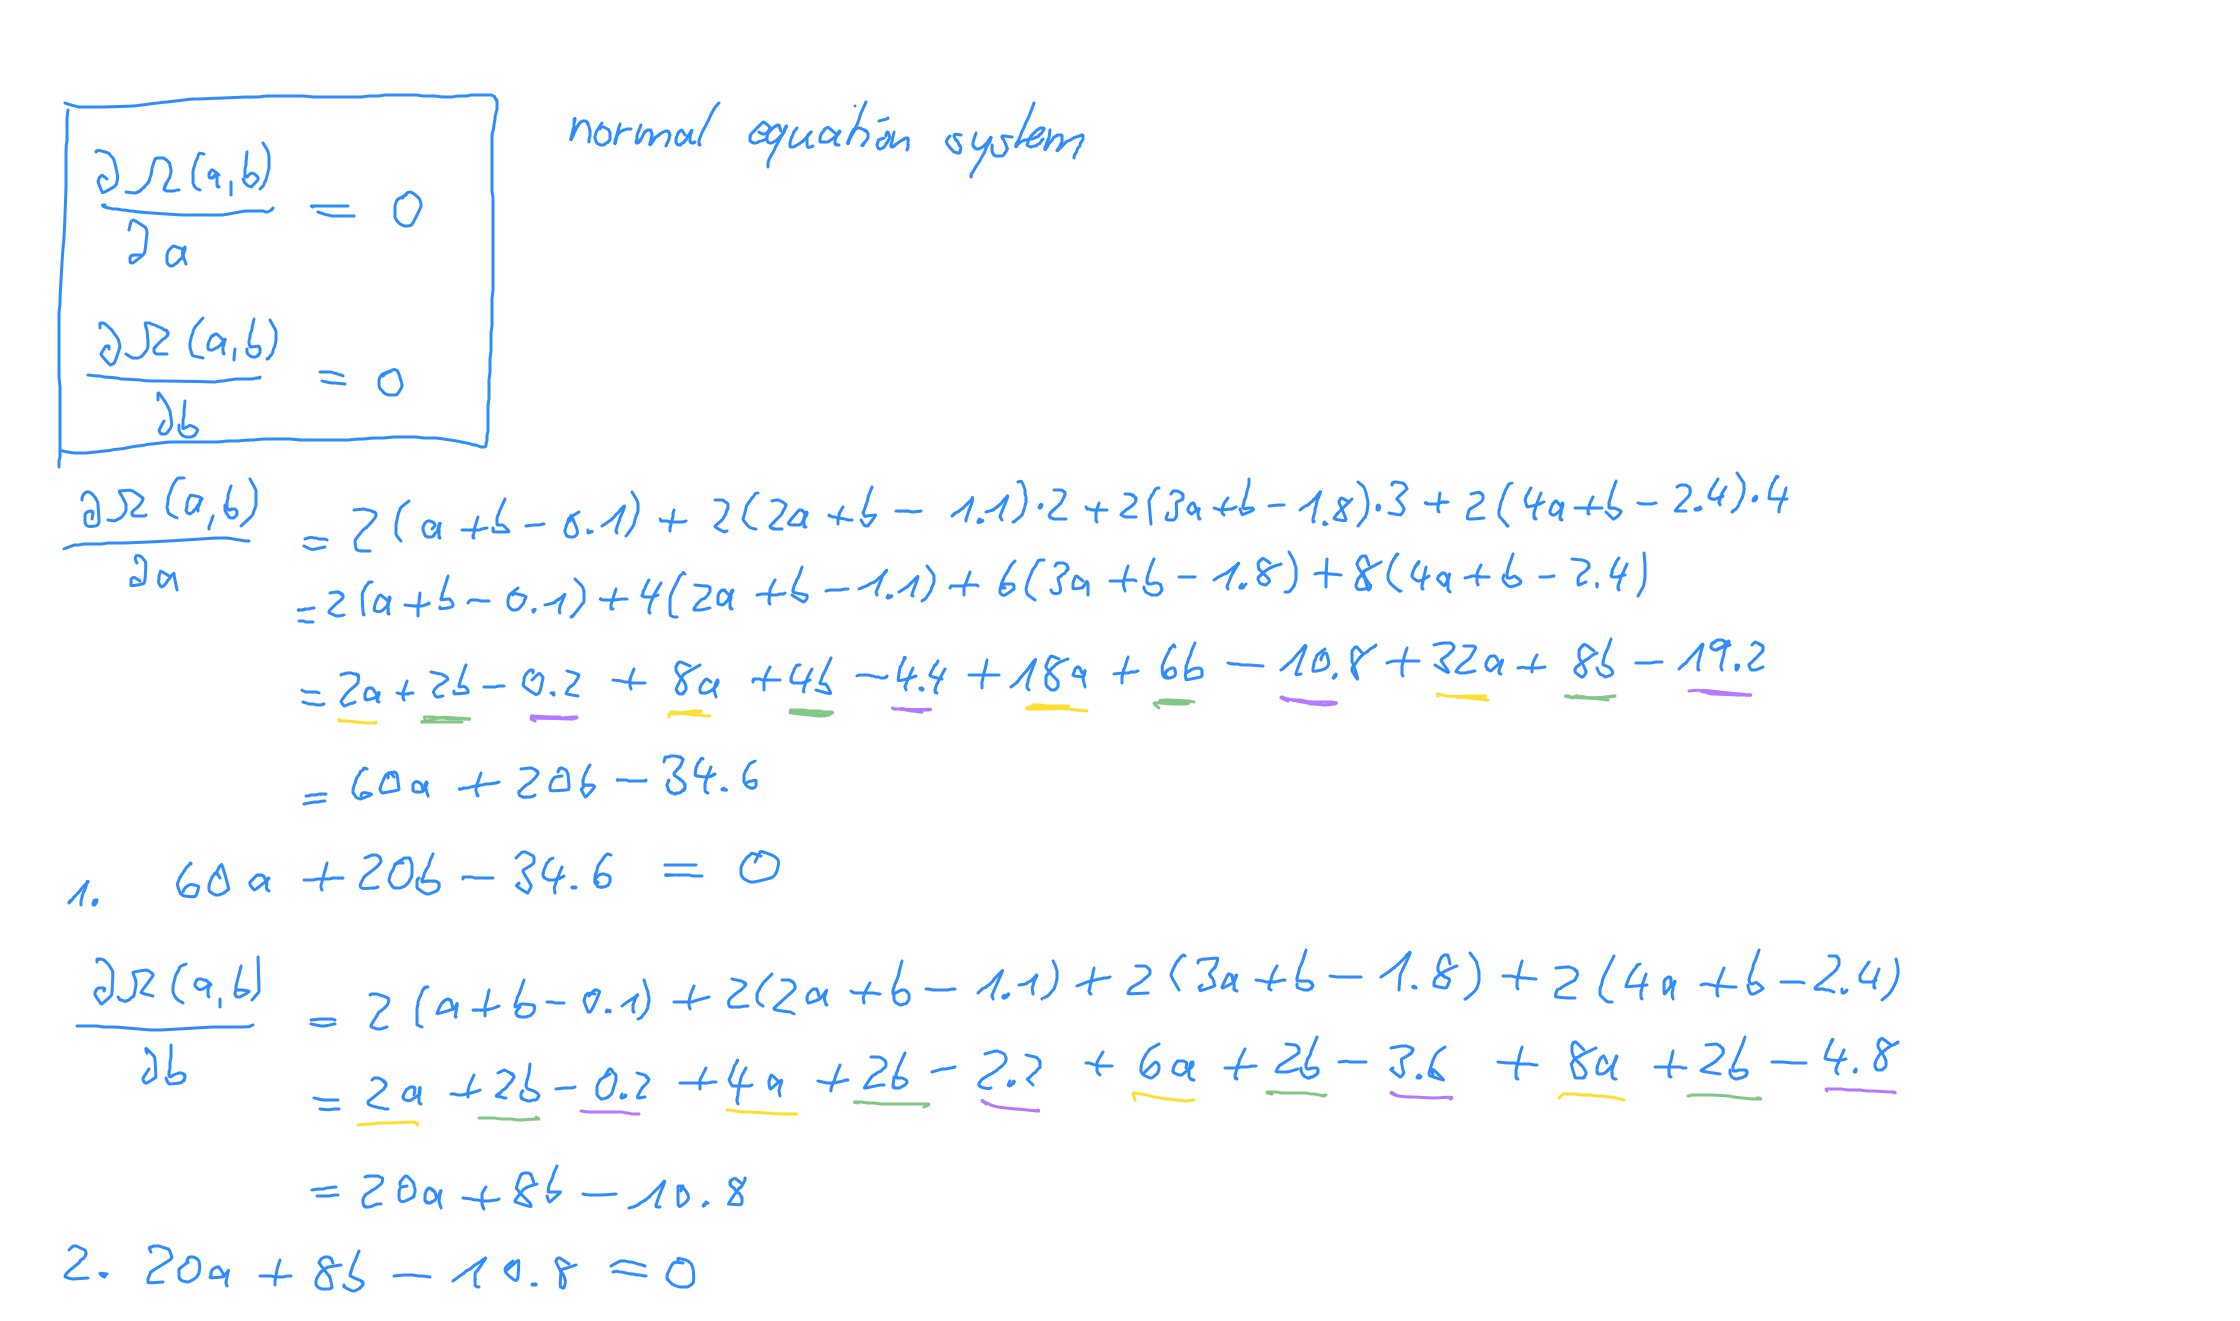 normal equation system
∂Ω(a,b)/∂a = 0
∂Ω(a,b)/∂b = 0
∂Ω(a,b)/∂a = 2(a+b-0.1) + 2(2a+b-1.1)·2 + 2(3a+b-1.8)·3 + 2(4a+b-2.4)·4
= 2(a+b-0.1) + 4(2a+b-1.1) + 6(3a+b-1.8) + 8(4a+b-2.4)
= 2a+2b-0.2 + 8a + 4b - 4.4 + 18a + 6b - 10.8 + 32a + 8b - 19.2
= 60a + 20b - 34.6
1. 60a + 20b - 34.6 = 0
∂Ω(a,b)/∂b = 2(a+b-0.1) + 2(2a+b-1.1) + 2(3a+b-1.8) + 2(4a+b-2.4)
= 2a + 2b - 0.2 + 4a + 2b - 2.2 + 6a + 2b - 3.6 + 8a + 2b - 4.8
= 20a + 8b - 10.8
2. 20a + 8b - 10.8 = 0